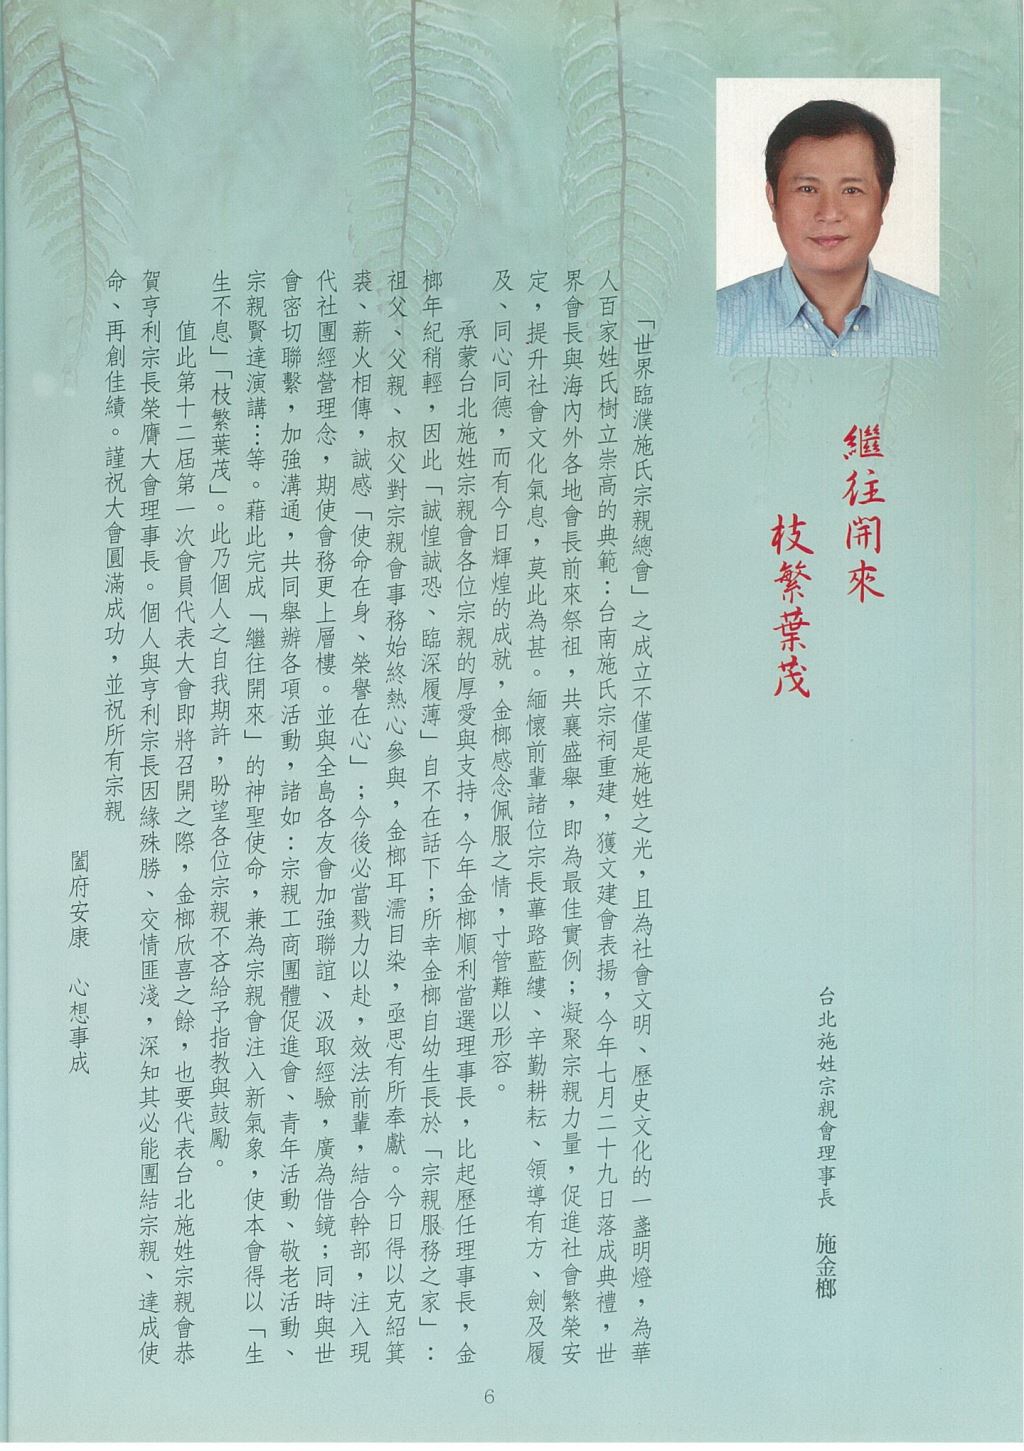 繼往開來
枝繁葉茂
台北施姓宗親會理事長　施金榔
「世界臨濮施氏宗親總會」之成立不僅是施姓之光，且為社會文明、歷史文化的一盞明燈，為華
人百家姓氏樹立崇高的典範：台南施氏宗祠重建，獲文建會表揚，今年七月二十九日落成典禮，世
界會長與海內外各地會長前來祭祖，共襄盛舉，即為最佳實例；凝聚宗親力量，促進社會繁榮安
定，提升社會文化氣息，莫此為甚。緬懷前輩諸位宗長蓽路藍縷、辛勤耕耘、領導有方、劍及履
及、同心同德，而有今日輝煌的成就，金榔感念佩服之情，寸管難以形容。
承蒙台北施姓宗親會各位宗親的厚愛與支持，今年金榔順利當選理事長，比起歷任理事長，金
榔年紀稍輕，因此「誠惶誠恐、臨深履薄」自不在話下；所幸金榔自幼生長於「宗親服務之家」：
祖父、父親、叔父對宗親會事務始終熱心參與，金榔耳濡目染，亟思有所奉獻。今日得以克紹箕
裘、薪火相傳，誠感「使命在身、榮譽在心」；今後必當戮力以赴，效法前輩，結合幹部，注入現
代社團經營理念，期使會務更上層樓。並與全島各友會加強聯誼、汲取經驗，廣為借鏡；同時與世
會密切聯繫，加強溝通，共同舉辦各項活動，諸如：宗親工商團體促進會、青年活動、敬老活動、
宗親賢達演講…等。藉此完成「繼往開來」的神聖使命，兼為宗親會注入新氣象，使本會得以「生
生不息」「枝繁葉茂」。此乃個人之自我期許，盼望各位宗親不吝給予指教與鼓勵。
值此第十二屆第一次會員代表大會即將召開之際，金榔欣喜之餘，也要代表台北施姓宗親會恭
賀亨利宗長榮膺大會理事長。個人與亨利宗長因緣殊勝、交情匪淺，深知其必能團結宗親、達成使
命、再創佳績。謹祝大會圓滿成功，並祝所有宗親
闔府安康　心想事成
6